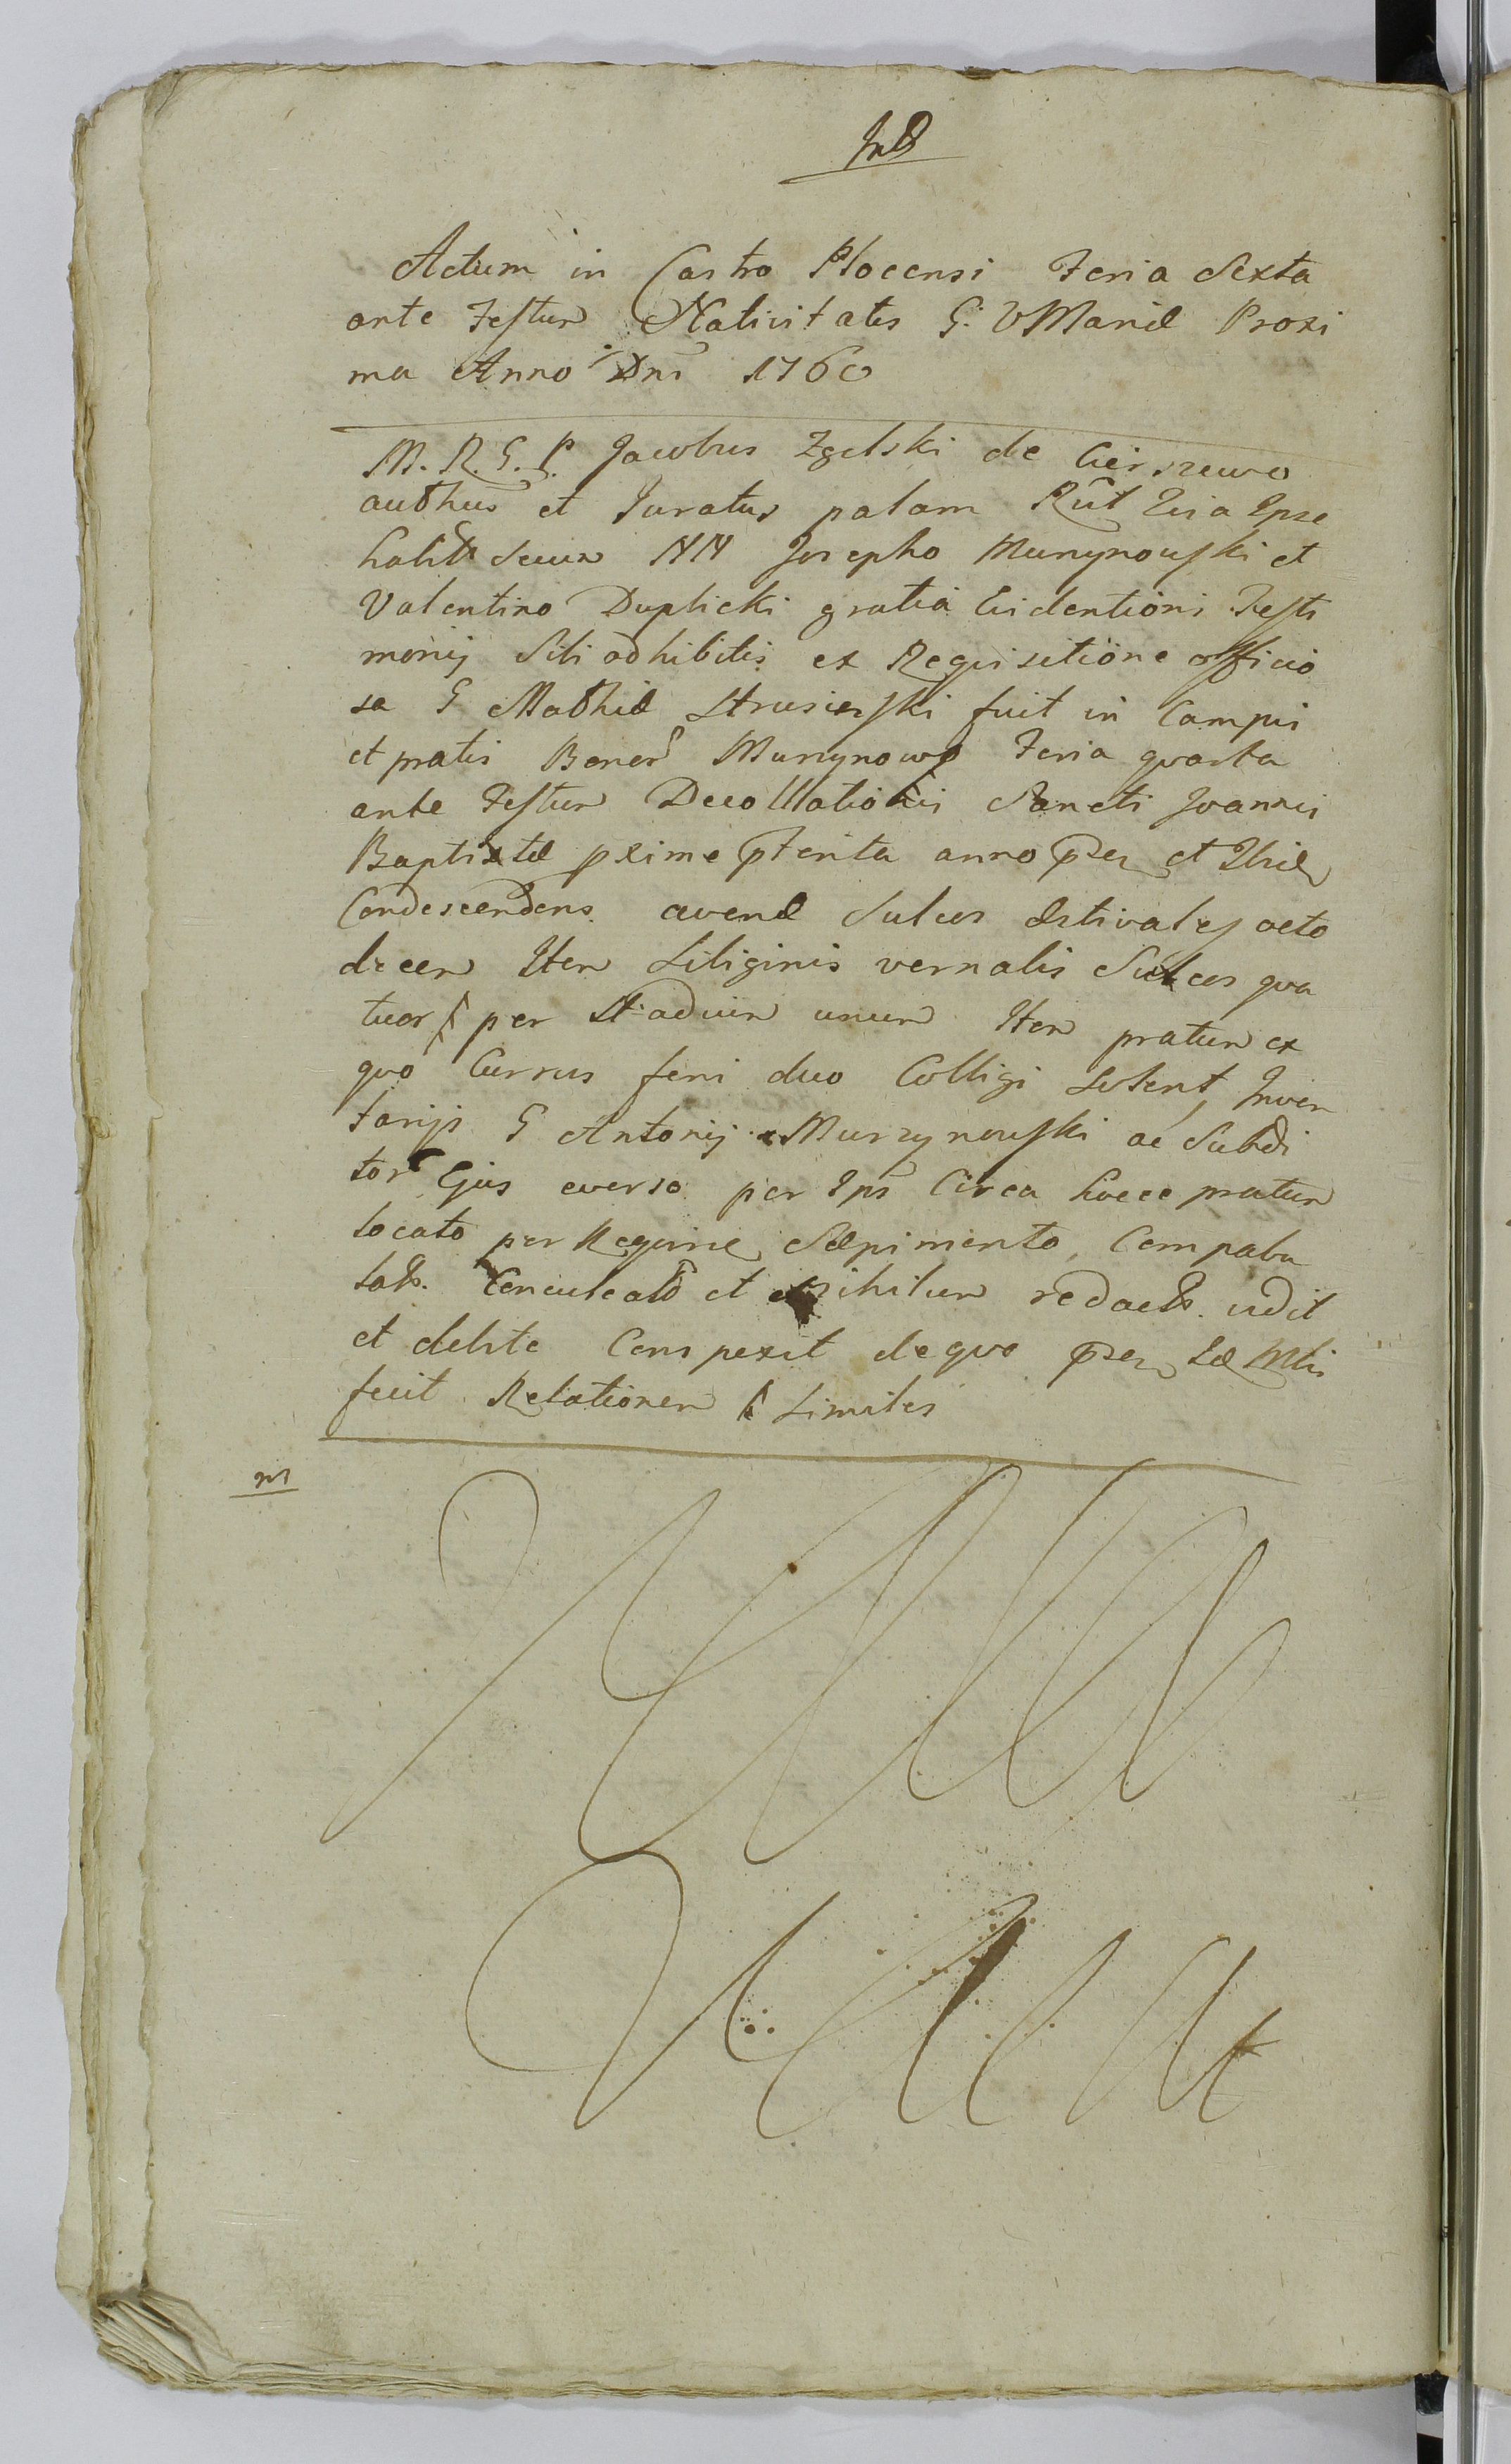 Actum in Castro Plocensi Feria Sexta
ante Festum Nativitatis G. V Mariæ Proxi
ma Anno Dni 1760
M. R. G. P. Jacobus Zgelski de
authus et Juratus palam
habit Secum NN Josepho Murzynowski et
Valentino Duplicki gratia Evidentioris Testi
monij Sibi adhibitis ex Requisitione officio
sa G Mathiæ Strusieski fuit in Campis
et pratis Bonor Murzynowo Feria quarta
ante Festum Decollationis Sancti Joannis
Baptistæ pxime pterita anno et
Condescendens avenæ Sulcos æstivales octo
decem Item Siliginis vernalis Sulcos qua
tuor per Stadium unum Item pratum ex
quo Currus feni duo Colligi Solent, Inven
tarijs G Antonij Murzynowski ac Subdi
tor Ejus everso per Ips Circa hocce pratum
locato per Sæpimento, Compabu
lats. Conculcato et nihilum redacts. vidit
et debite Conspexit de quo
fecit Relationem Similes